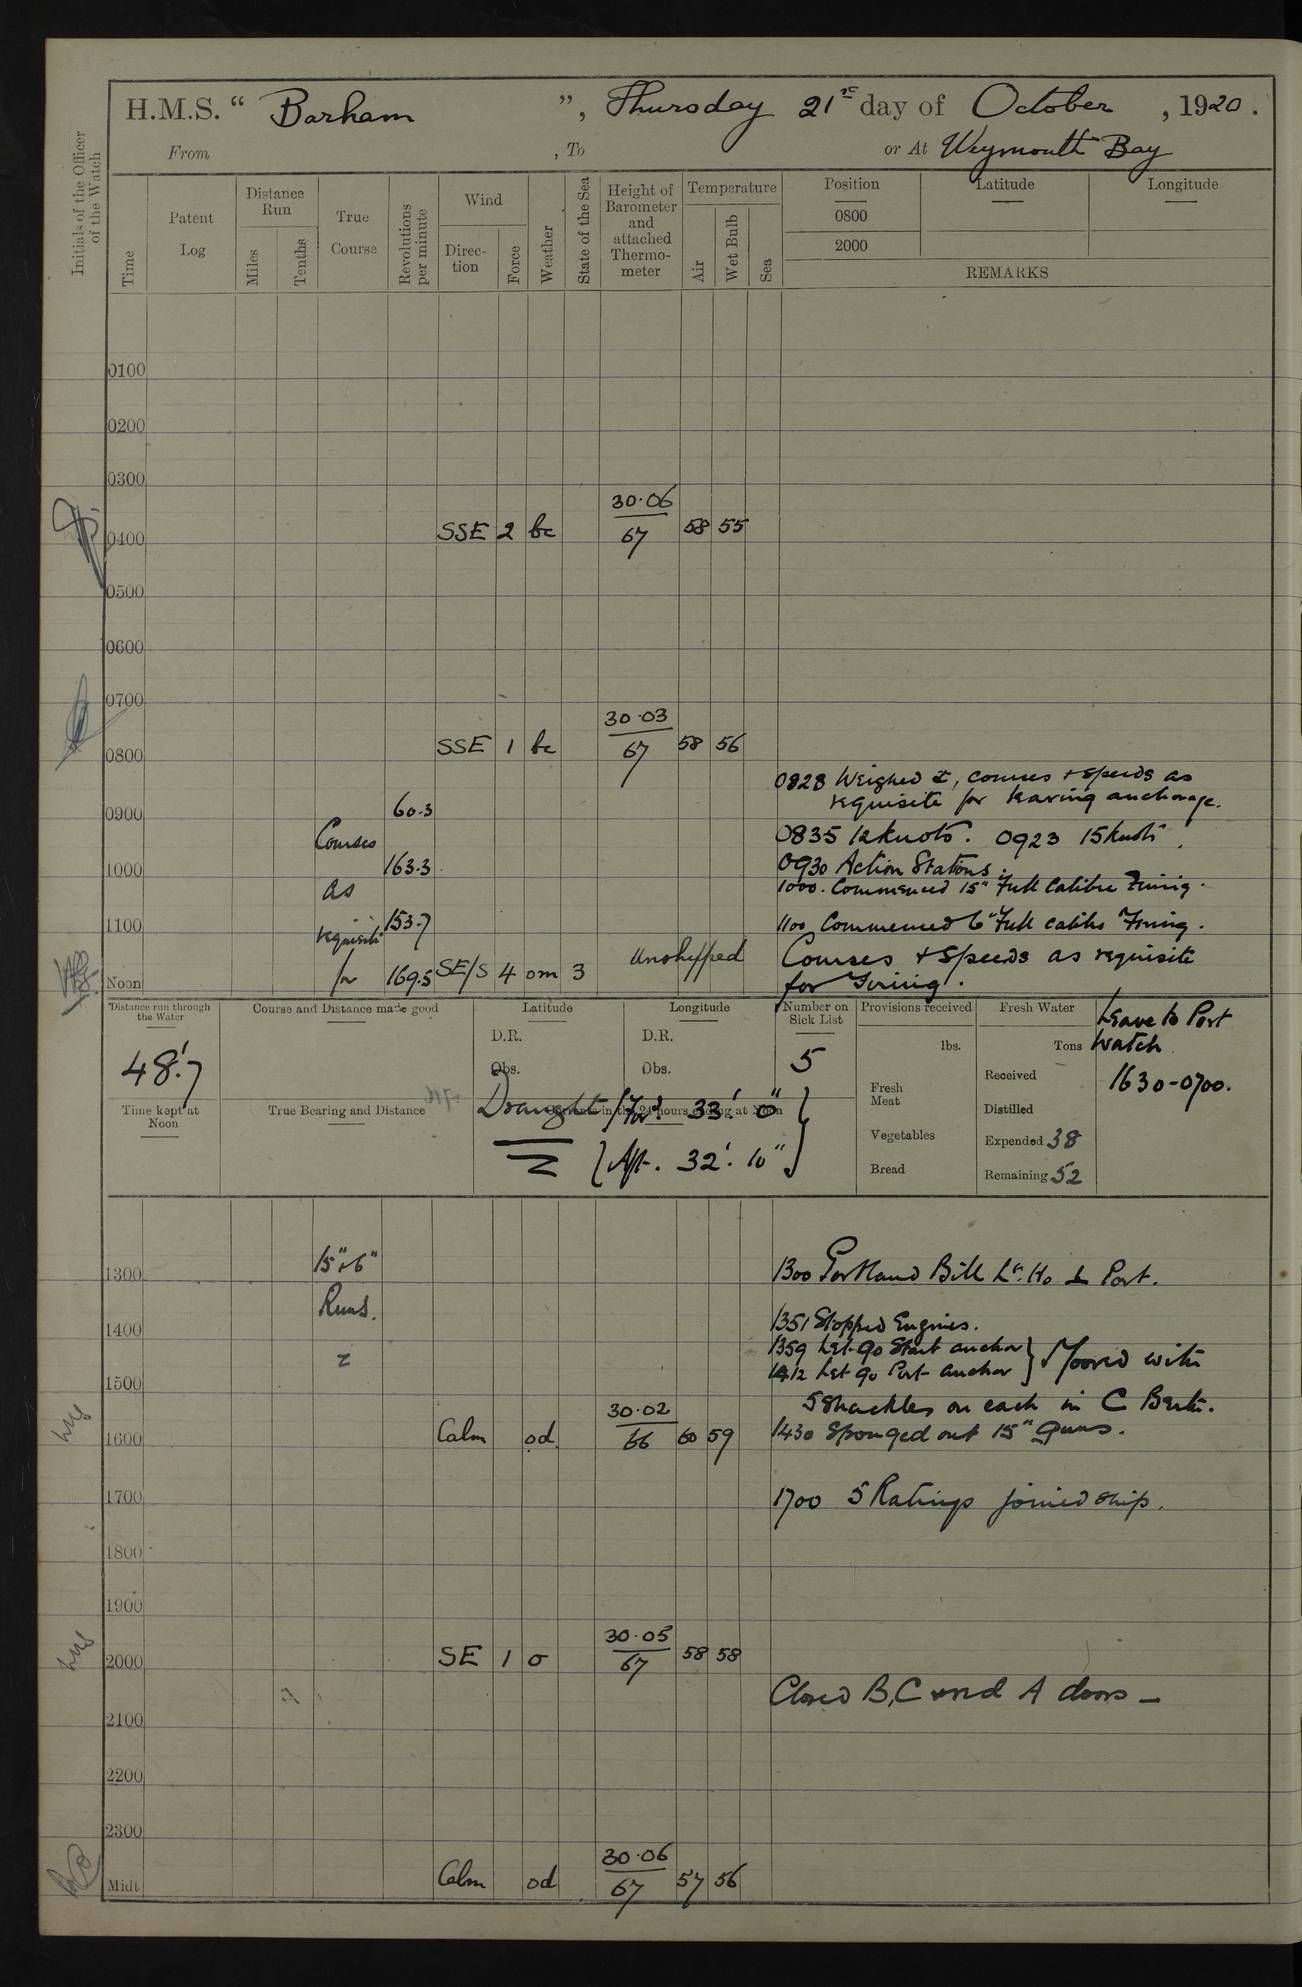 H.M.S. “ Barham ”, Thursday 21st day of October , 1920 .
From , To or At Weymouth Bay
Initials of the Officer of the Watch
Time
Patent Log
Distance Run
Miles
Tenths
True Course
Revolutions per minute
Wind
Direc-tion
Force
Weather
State of the Sea
Height of Barometer and attached Thermo-meter
Temperature
Air
Wet Bulb
Sea
Position Latitude Longitude
0800
2000
REMARKS
0100
0200
0300
0400 SSE 2 bc 30·06 67 58 55
0500
0600
0700
0800 SSE 1 bc 30·03 67 58 56
0828 Weighed, courses + speeds as
requisite for leaving anchorage.
0900 60.3
Courses 0835 12 knots. 0923 15 knots.
0930 Action Stations.
1000 as 163.3 1000. Commenced 15" Full Calibre Firing.
1100 requisite 153.7 1100 Commenced 6" Full calibre Firing.
Noon for 169.5 SE/S 4 om 3 Unshipped Courses + Speeds as requisite
for Firing.
Distance run through the Water
48'.7
Course and Distance made good
Latitude
D.R.
Obs.
Longitude
D.R.
Obs.
Number on Sick List
5
Provisions received
lbs.
Fresh Meat
Vegetables
Bread
Fresh Water
Tons
Received
Distilled
Expended 38
Remaining 52
Leave to Port
Watch
1630-0700.
Time kept at Noon
True Bearing and Distance
Current in the 24 hours ending at Noon
Draught { For'd. 33'. 0" }
{ Aft. 32'. 10" }
1300 15" + 6" 1300 Portland Bill Lt. Ho ⊥ Port.
Runs.
1351 Stopped Engines.
1400 1359 Let go Starb anchor } Moored with
1412 Let go Port anchor }
1500 5 Shackles on each in C Berth.
1600 Calm od 30·02 66 60 59 1430 Sponged out 15" Guns.
1700 1700 5 Ratings joined ship.
1800
1900
2000 SE 1 o 30·05 67 58 58
Closed B, C and A doors —
2100
2200
2300
Midt Calm od 30·06 67 57 56